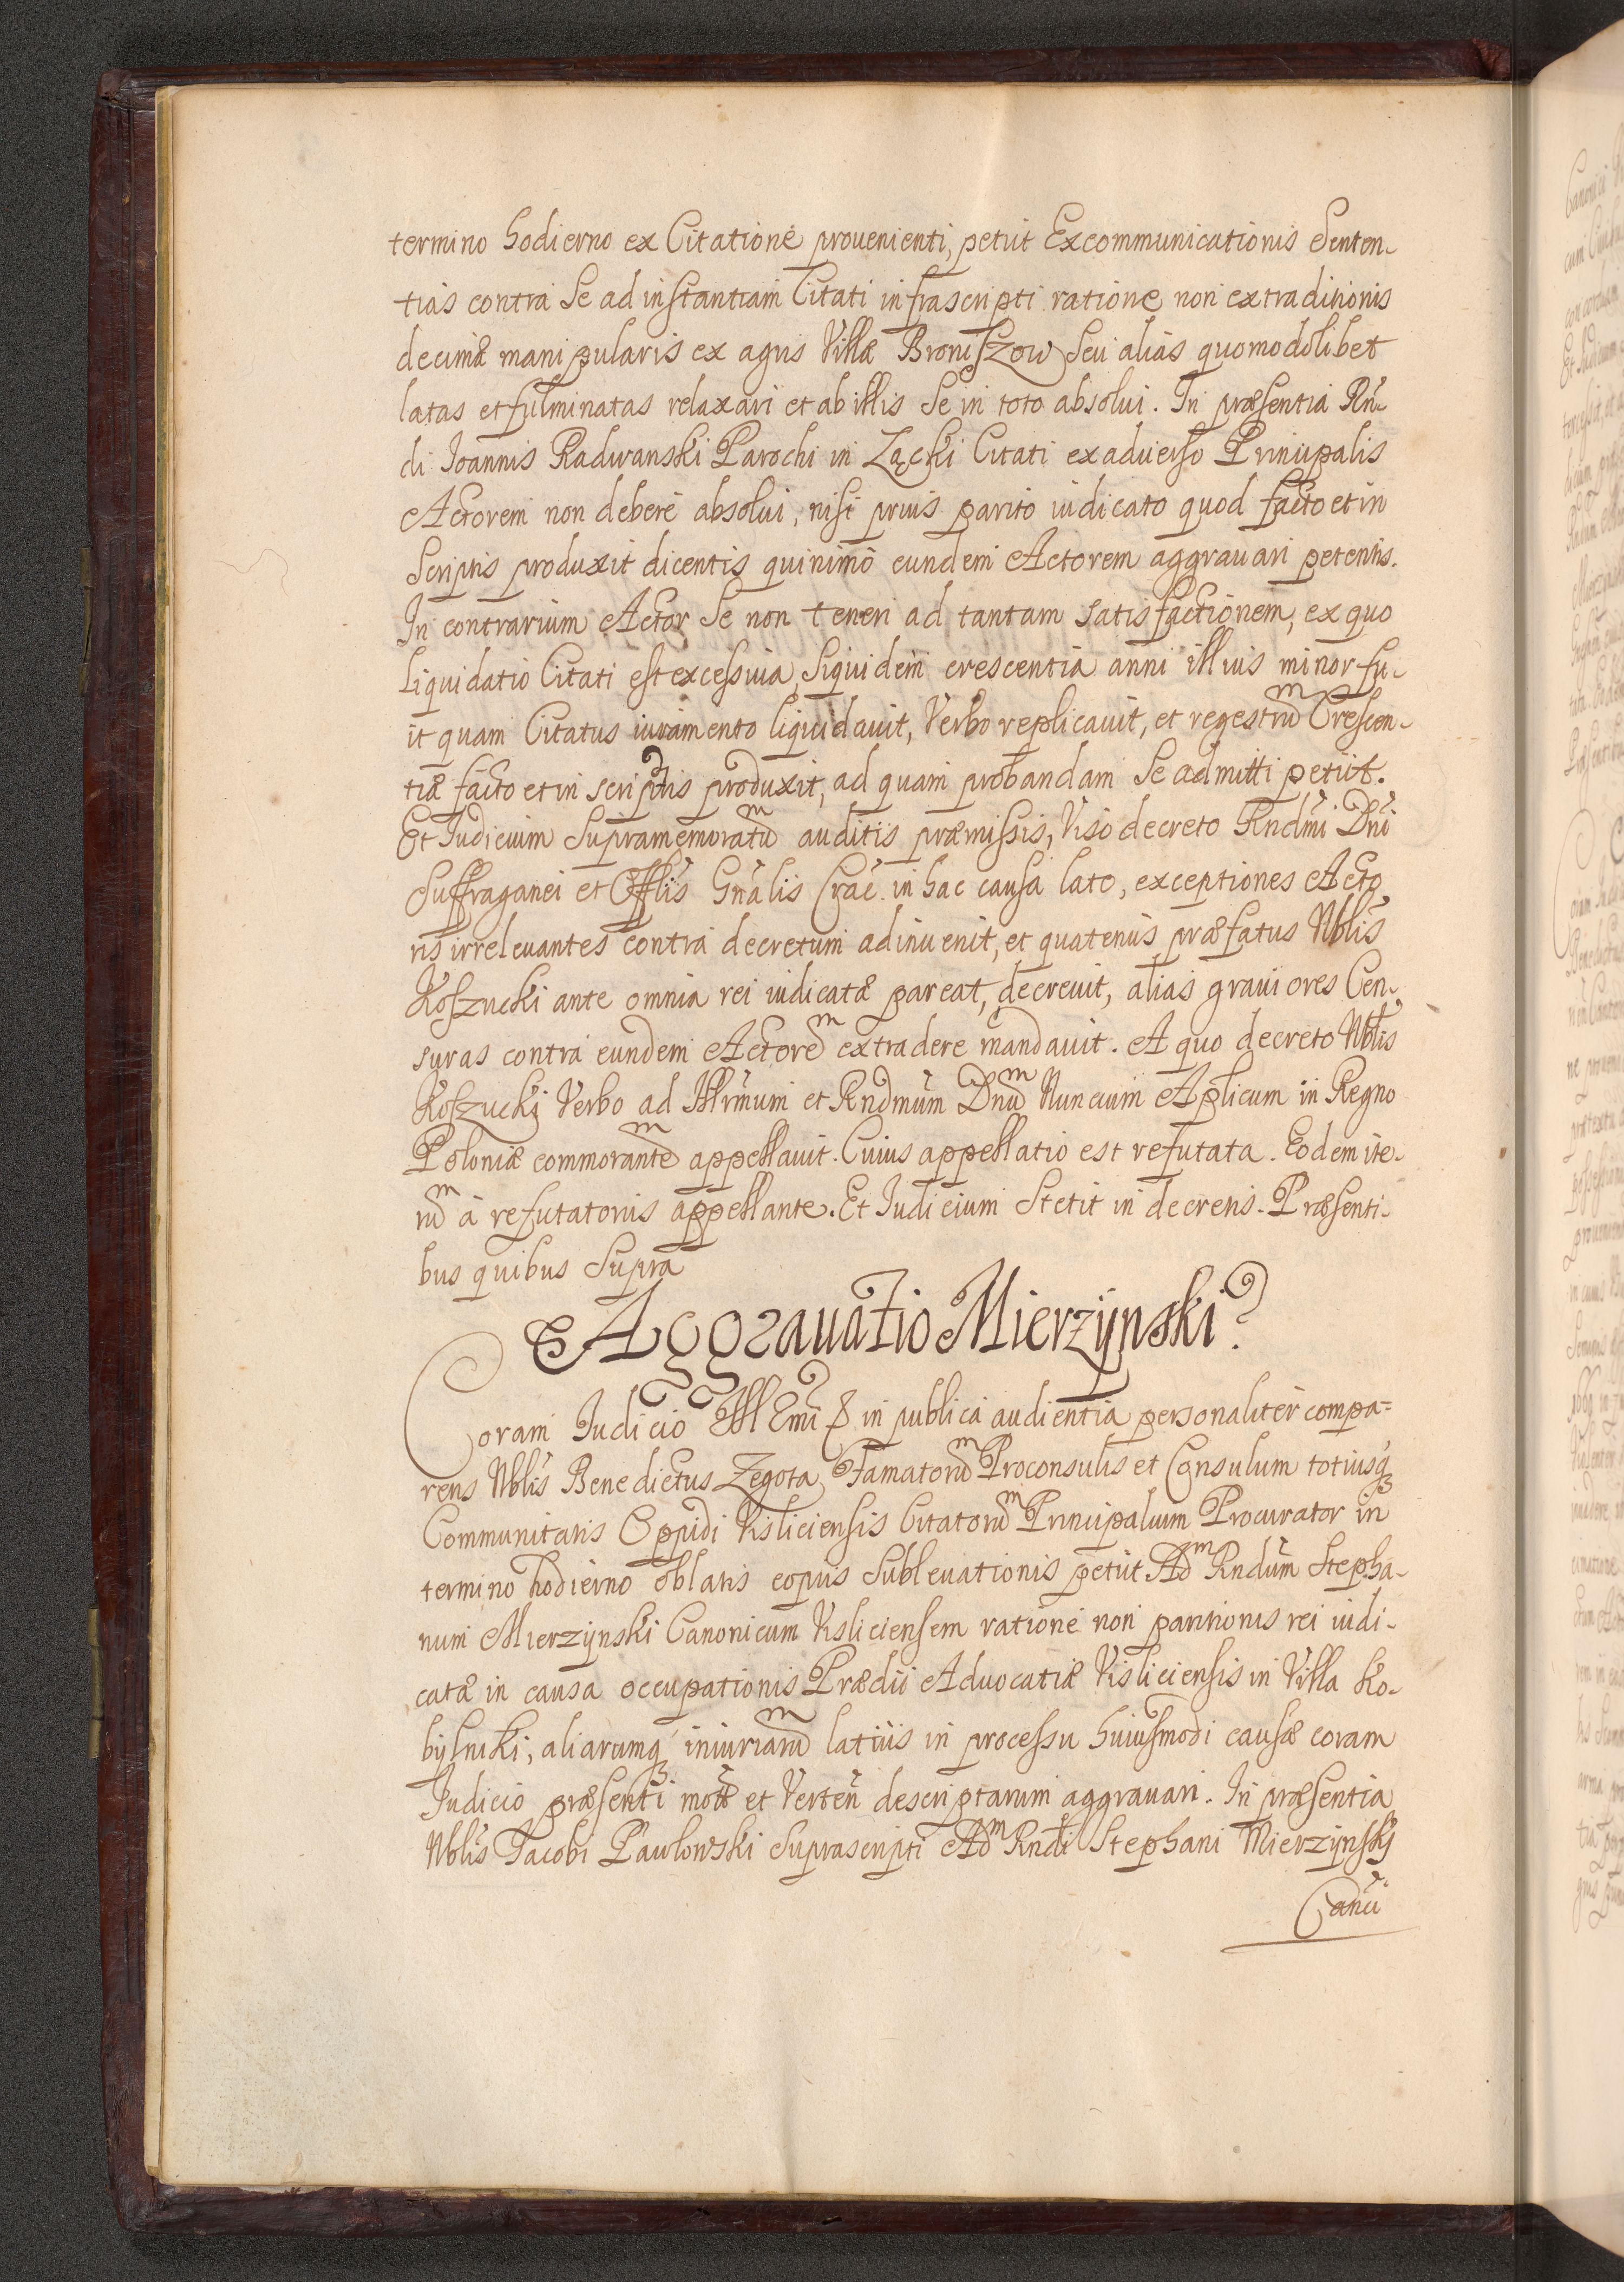 termino hodierno ex Citatione prouenienti, petiit Excommunicationis Senten-
tias contra Se ad instantiam Citati infrascripti ratione non extraditionis
decimæ manipularis ex agris Villæ Broniszow Seu alias quomodolibet
latas et fulminatas relaxari et ab illis Se in toto absolui. In præsentia Rñ-
di Joannis Radwanski Parochi in Zącki Citati ex aduerso Principalis
Actorem non debere absolui, nisi prius parito iudicato quod facto et in
Scriptis produxit dicentis quinimo eundem Actorem aggrauari petentis.
In contrarium Actor Se non teneri ad tantam satisfactionem, ex quo
Liquidatio Citati est excessiua, Siquidem crescentia anni illius minor fu-
it quam Citatus iuramento liquidauit, Verbo replicauit, et regestrũ Crescen-
tiæ facto et in scriptis produxit, ad quam probandam Se admitti petiit.
Et Judicium Supramemoratũ auditis præmissis, Viso decreto Rndmi Dni
Suffraganei et Offlis Gnalis Crac. in hac causa lato, exceptiones Acto
ris irreleuantes contra decretum adinuenit, et quatenus præfatus Nblis
Koszucki ante omnia rei iudicatæ pareat, decreuit, alias grauiores Cen-
suras contra eundem Actorẽ extradere mandauit. A quo decreto Nblis
Koszucki Verbo ad Illrmum et Rndmum Dnũ Nuncium Aplicum in Regno
Poloniæ commorantẽ appellauit. Cuius appellatio est refutata. Eodem ite-
rũ à refutatoriis appellante. Et Judicium Stetit in decretis. Præsenti-
bus quibus Supra
Aggrauatio Mierzijnski.
Coram Judicio Ill Emi & in publica audientia personaliter compa=
rens Nblis Benedictus Zegota, Famatorũ Proconsulis et Consulum totiusq
Communitatis Oppidi Visliciensis Citatorũ Principalium Procurator in
termino hodierno oblatis copiis Subleuationis petiit Ad m Rndum Stepha-
num Mierzijnski Canonicum Visliciensem ratione non paritionis rei iudi-
catæ in causa occupationis Prædii Aduocatiæ Visliciensis in Villa Ko-
bijlniki, aliarumq iniuriarũ latius in processu huiusmodi causæ coram
Judicio præsenti motæ et Verten descriptarum aggrauari. In præsentia
Nblis Jacobi Pawlowski Suprascripti Ad m Rndi Stephani Mierzijnskj
Canũ